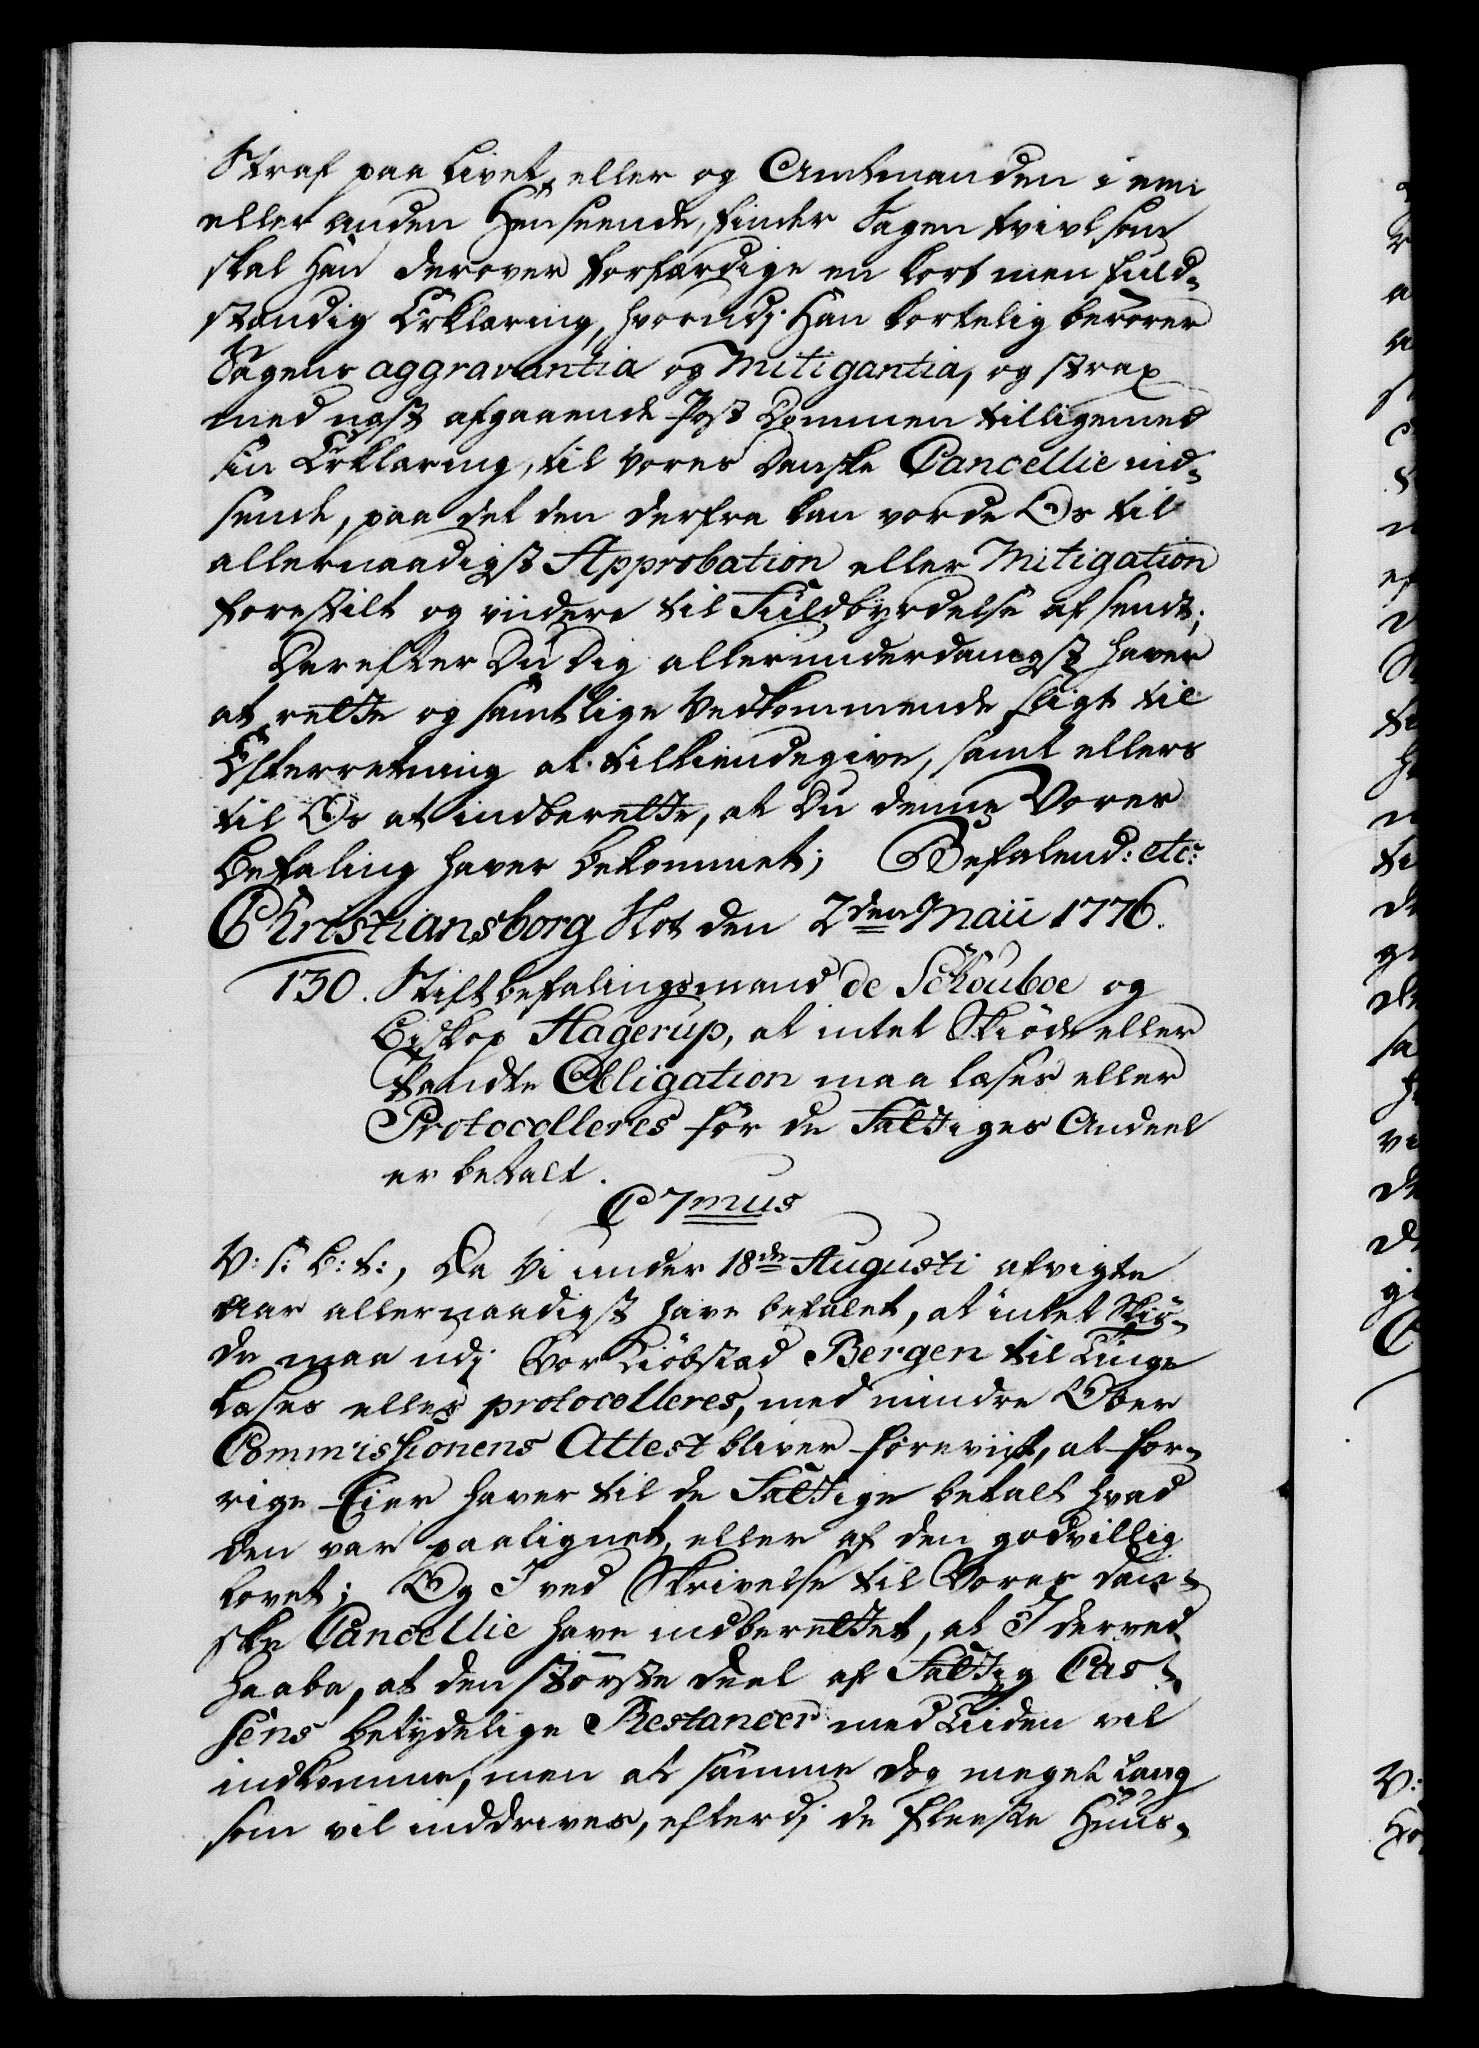 Straf paa Livet, eller og Amtmanden i een
eller anden Henseende, finder Sagen tvivlsom
skal Han derover forfærdige en kort men fuld-
stændig Erklæring, hvorudj Han kortelig berører
Sagens aggravantia og Mitigantia, og strax
med næst afgaaende Post Dommen tilligemed
sin Erklæring, til Vores Danske Cancellie ind-
sende, paa det den derfra kan vorde Os til
allernaadigst Approbation eller Mitigation
forestilt og viidere til Fuldbyrdelse afsendt;
Derefter Du Dig allerunderdanigst haver
at rette og samtlige Vedkommende sligt til
Efterretning at tilkiendegive, samt ellers
til Os at indberette, at Du denne Vores
Befaling haver bekommet; Befalend: etc:
Christiansborg Slot den 2den Maii 1776.
130. Stiftbefalingsmand de Schouboe og
Biskop Hagerup, at intet Skiøde eller
Pandte Obligation maa læses eller
Protocolleres før de Fattiges Andeel
er betalt.
C 7mus
V: S: B: t:, Da Vi under 18de Augusti afvigte
Aar allernaadigst have befalet, at intet Skiø-
de maa udj Vor Kiøbstad Bergen til Tinge
læses eller protocolleres, med mindre Over
Commissionens Attest bliver foreviist, at for-
rige Eier haver til de Fattige betalt hvad
den var paalignet, eller af den godvillig
lovet; Og I ved Skrivelse til Vores Dan-
ske Cancellie have indberettet, at I derved
haabe, at den største Deel af Fattig Cas-
sens betydelige Restancer med Tiiden vel
indkomme, men at samme dog meget lang
som vil inddrives, efterdj de fleeste Huus-